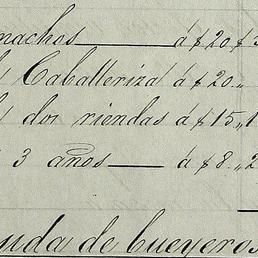 machos — á $ 20 $
Caballeriza á $ 20 "
dos riendas á $ 15 "
3 años — á $ 8 "2
de Cueyeros